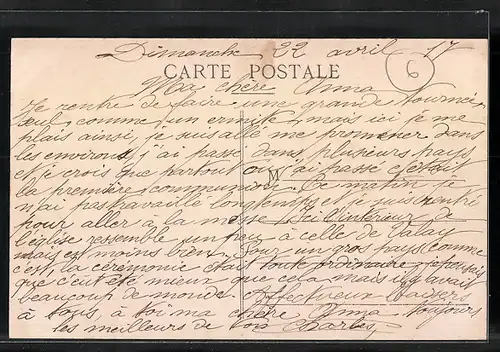 Dimanche 22 avril 17
6
CARTE POSTALE
Ma chère Anna
Je rentre de faire une grande tournée
seul comme un ermite, mais ici je me
plais ainsi, je suis allé me promener dans
les environs, j'ai passé dans plusieurs pays
et je crois que partout où j'ai passé c'était
M
la première communion. Ce matin je
n'ai pas travaillé longtemps et je suis rentré
pour aller à la messe. Ici l'intérieur de
l'église ressemble un peu à celle de
mais est moins bien. Pour un gros pays comme
c'est, la cérémonie était toute ordinaire, je pensais
que c'eut été mieux que cela mais il y avait
beaucoup de monde. Affectueux baisers
à tous, à toi ma chère Anna toujours
les meilleurs de ton Charles